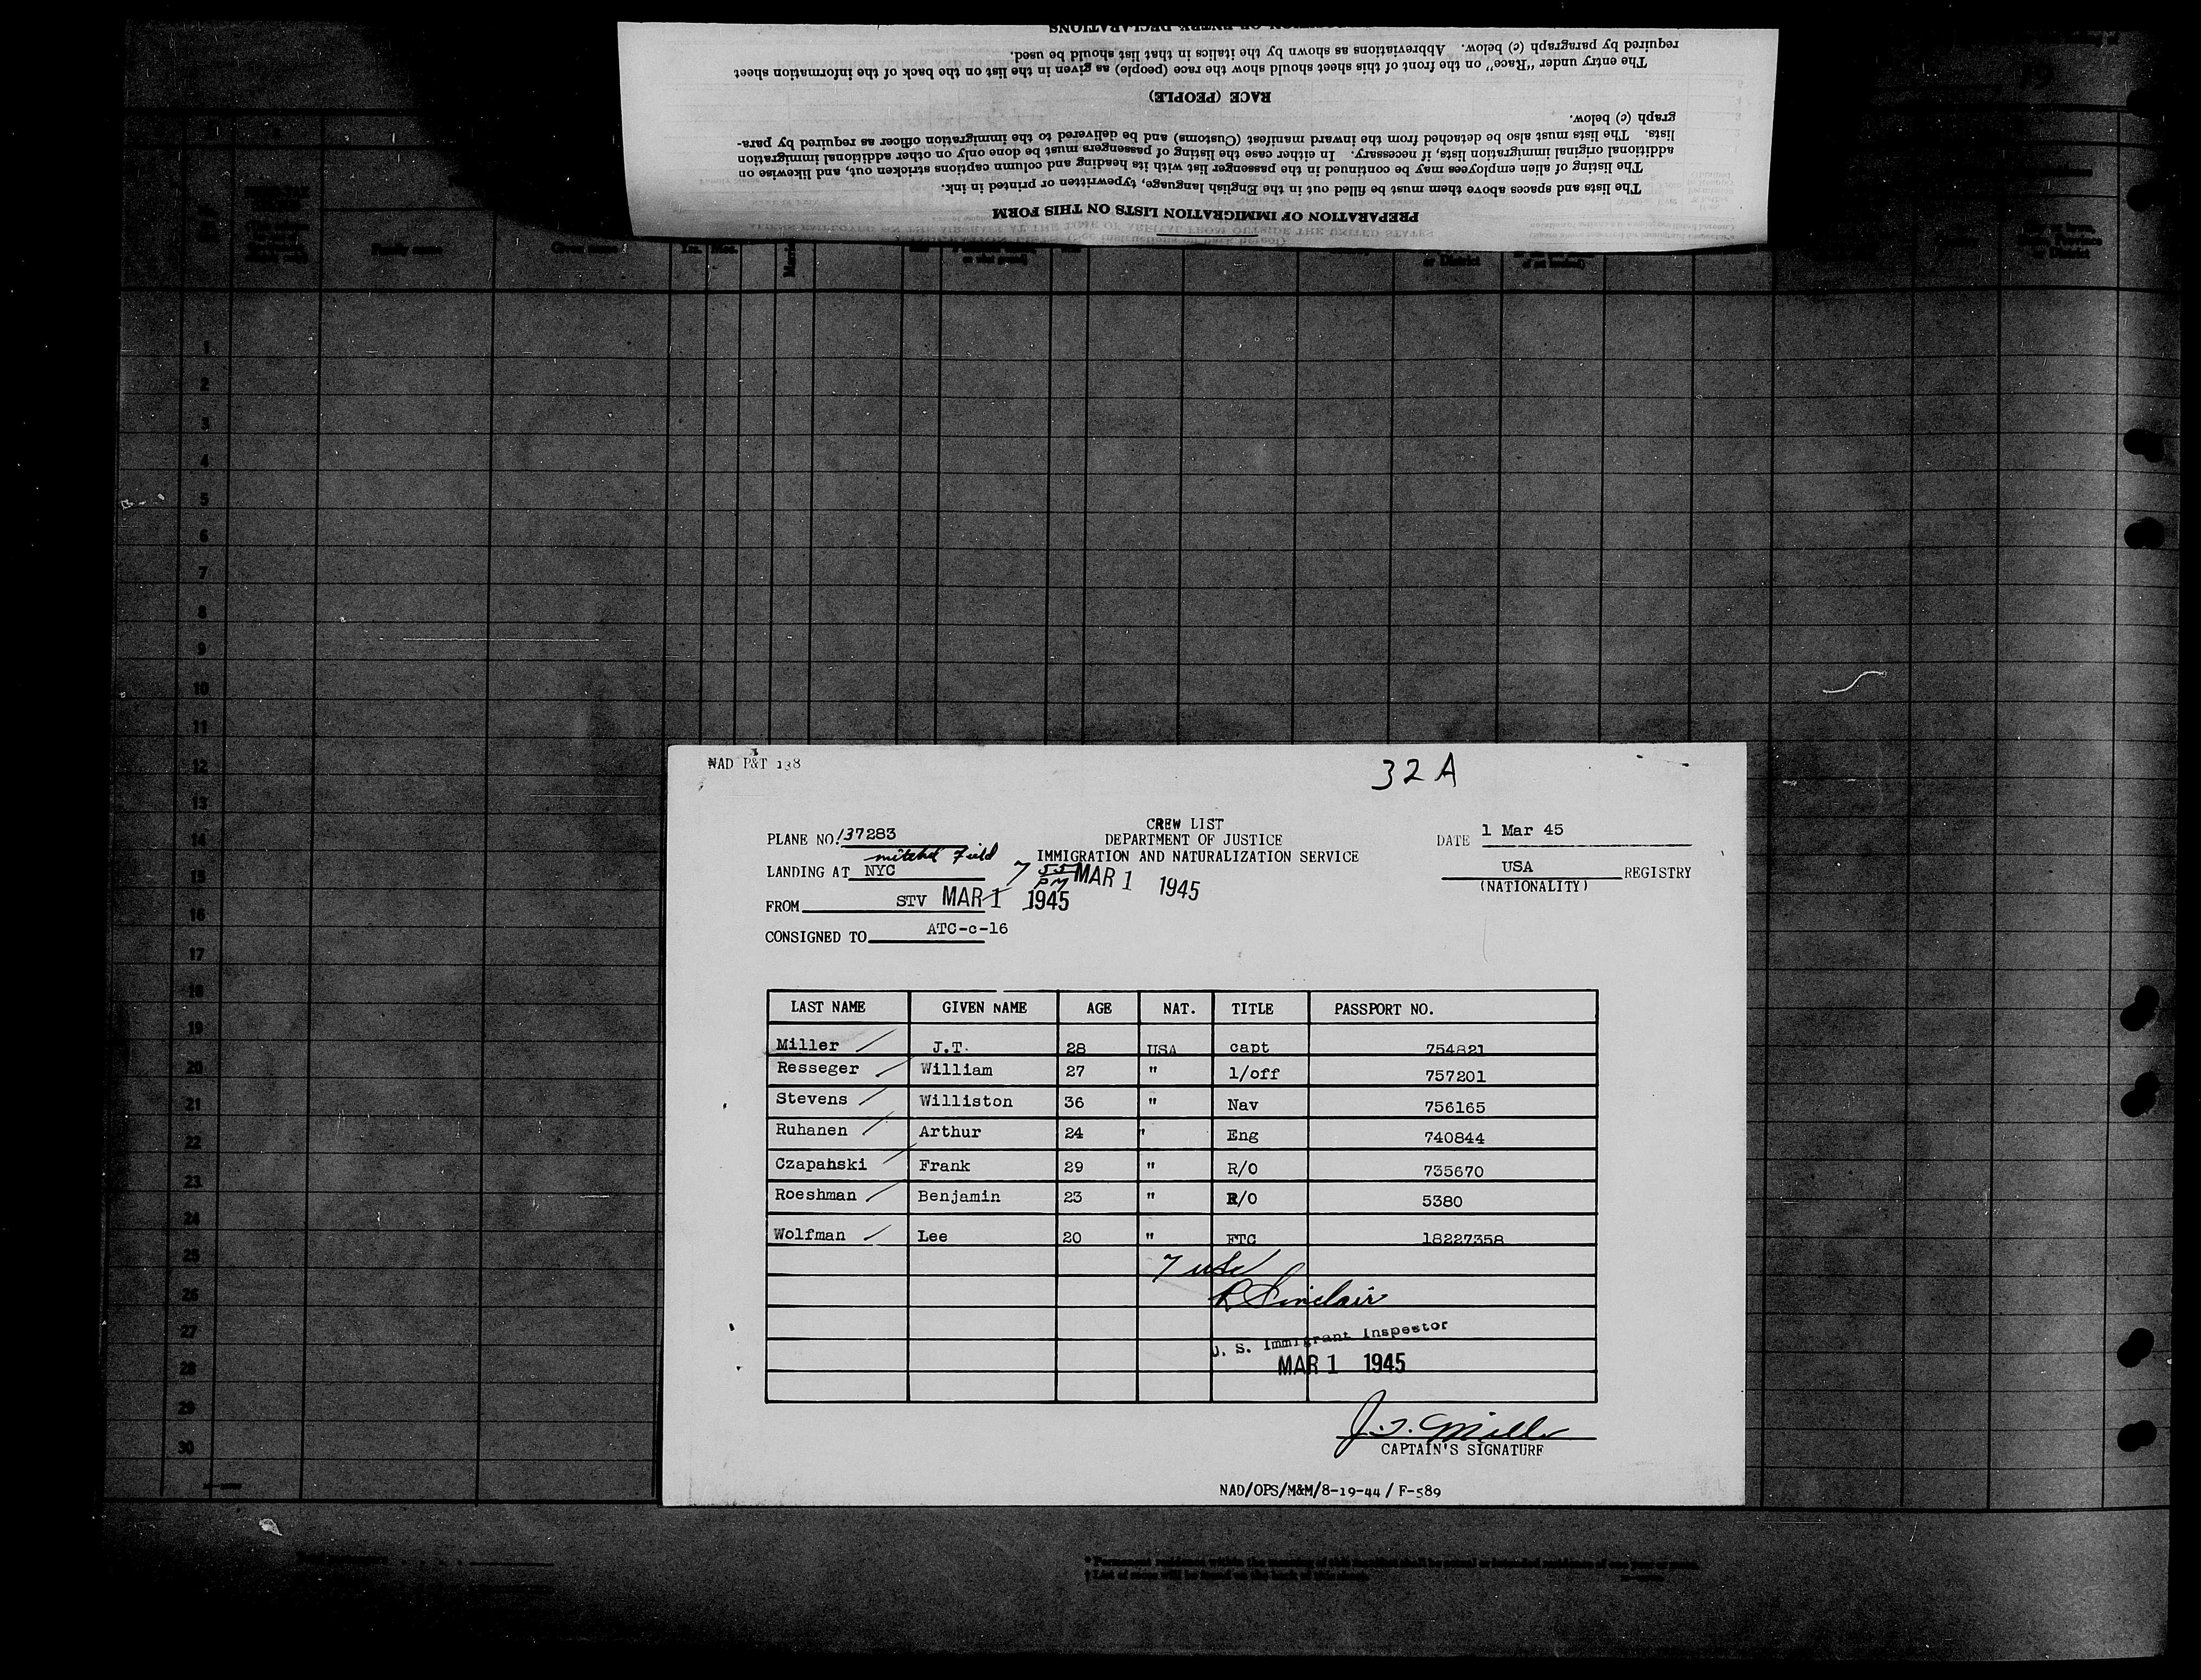 SECTION OF ENTRY DECLARATIONS
required by paragraph (c) below. Abbreviations as shown by the italics in that list should be used.
The entry under "Race" on the front of this sheet should show the race (people) as given in the list on the back of the information sheet
RACE (PEOPLE)
graph (c) below.
lists. The lists must also be detached from the inward manifest (Customs) and be delivered to the immigration officer as required by para-
additional original immigration lists, if necessary. In either case the listing of passengers must be done only on other additional immigration
The listing of alien employees may be continued in the passenger list with its heading and column captions stricken out, and likewise on
The lists and spaces above them must be filled out in the English language, typewritten or printed in ink.
PREPARATION OF IMMIGRATION LISTS ON THIS FORM
Family name Given name Yrs. Mos. or District
1
2
3
4
5
6
7
8
9
10
11
12
13
14
15
16
17
18
19
20
21
22
23
24
25
26
27
28
29
30
NAD P&T 138
32 A
CREW LIST
DEPARTMENT OF JUSTICE
IMMIGRATION AND NATURALIZATION SERVICE
PLANE NO. 137283
DATE 1 Mar 45
mitchel Field
LANDING AT NYC
7 55 PM MAR 1 1945
USA REGISTRY
(NATIONALITY)
FROM STV MAR 1 1945
CONSIGNED TO ATC-c-16
LAST NAME GIVEN NAME AGE NAT. TITLE PASSPORT NO.
Miller J.T. 28 USA capt 754821
Resseger William 27 " 1/off 757201
Stevens Williston 36 " Nav 756165
Ruhanen Arthur 24 " Eng 740844
Czapanski Frank 29 " R/O 735670
Roeshman Benjamin 23 " R/O 5380
Wolfman Lee 20 " FTC 18227358
7 USC
R Sinclair
U. S. Immigrant Inspector
MAR 1 1945
J. T. Miller
CAPTAIN'S SIGNATURE
NAD/OPS/M&M/8-19-44 / F-589
* Permanent residence within the meaning of this manifest shall be actual or intended residence of one year or more.
† List of races will be found on the back of this sheet.